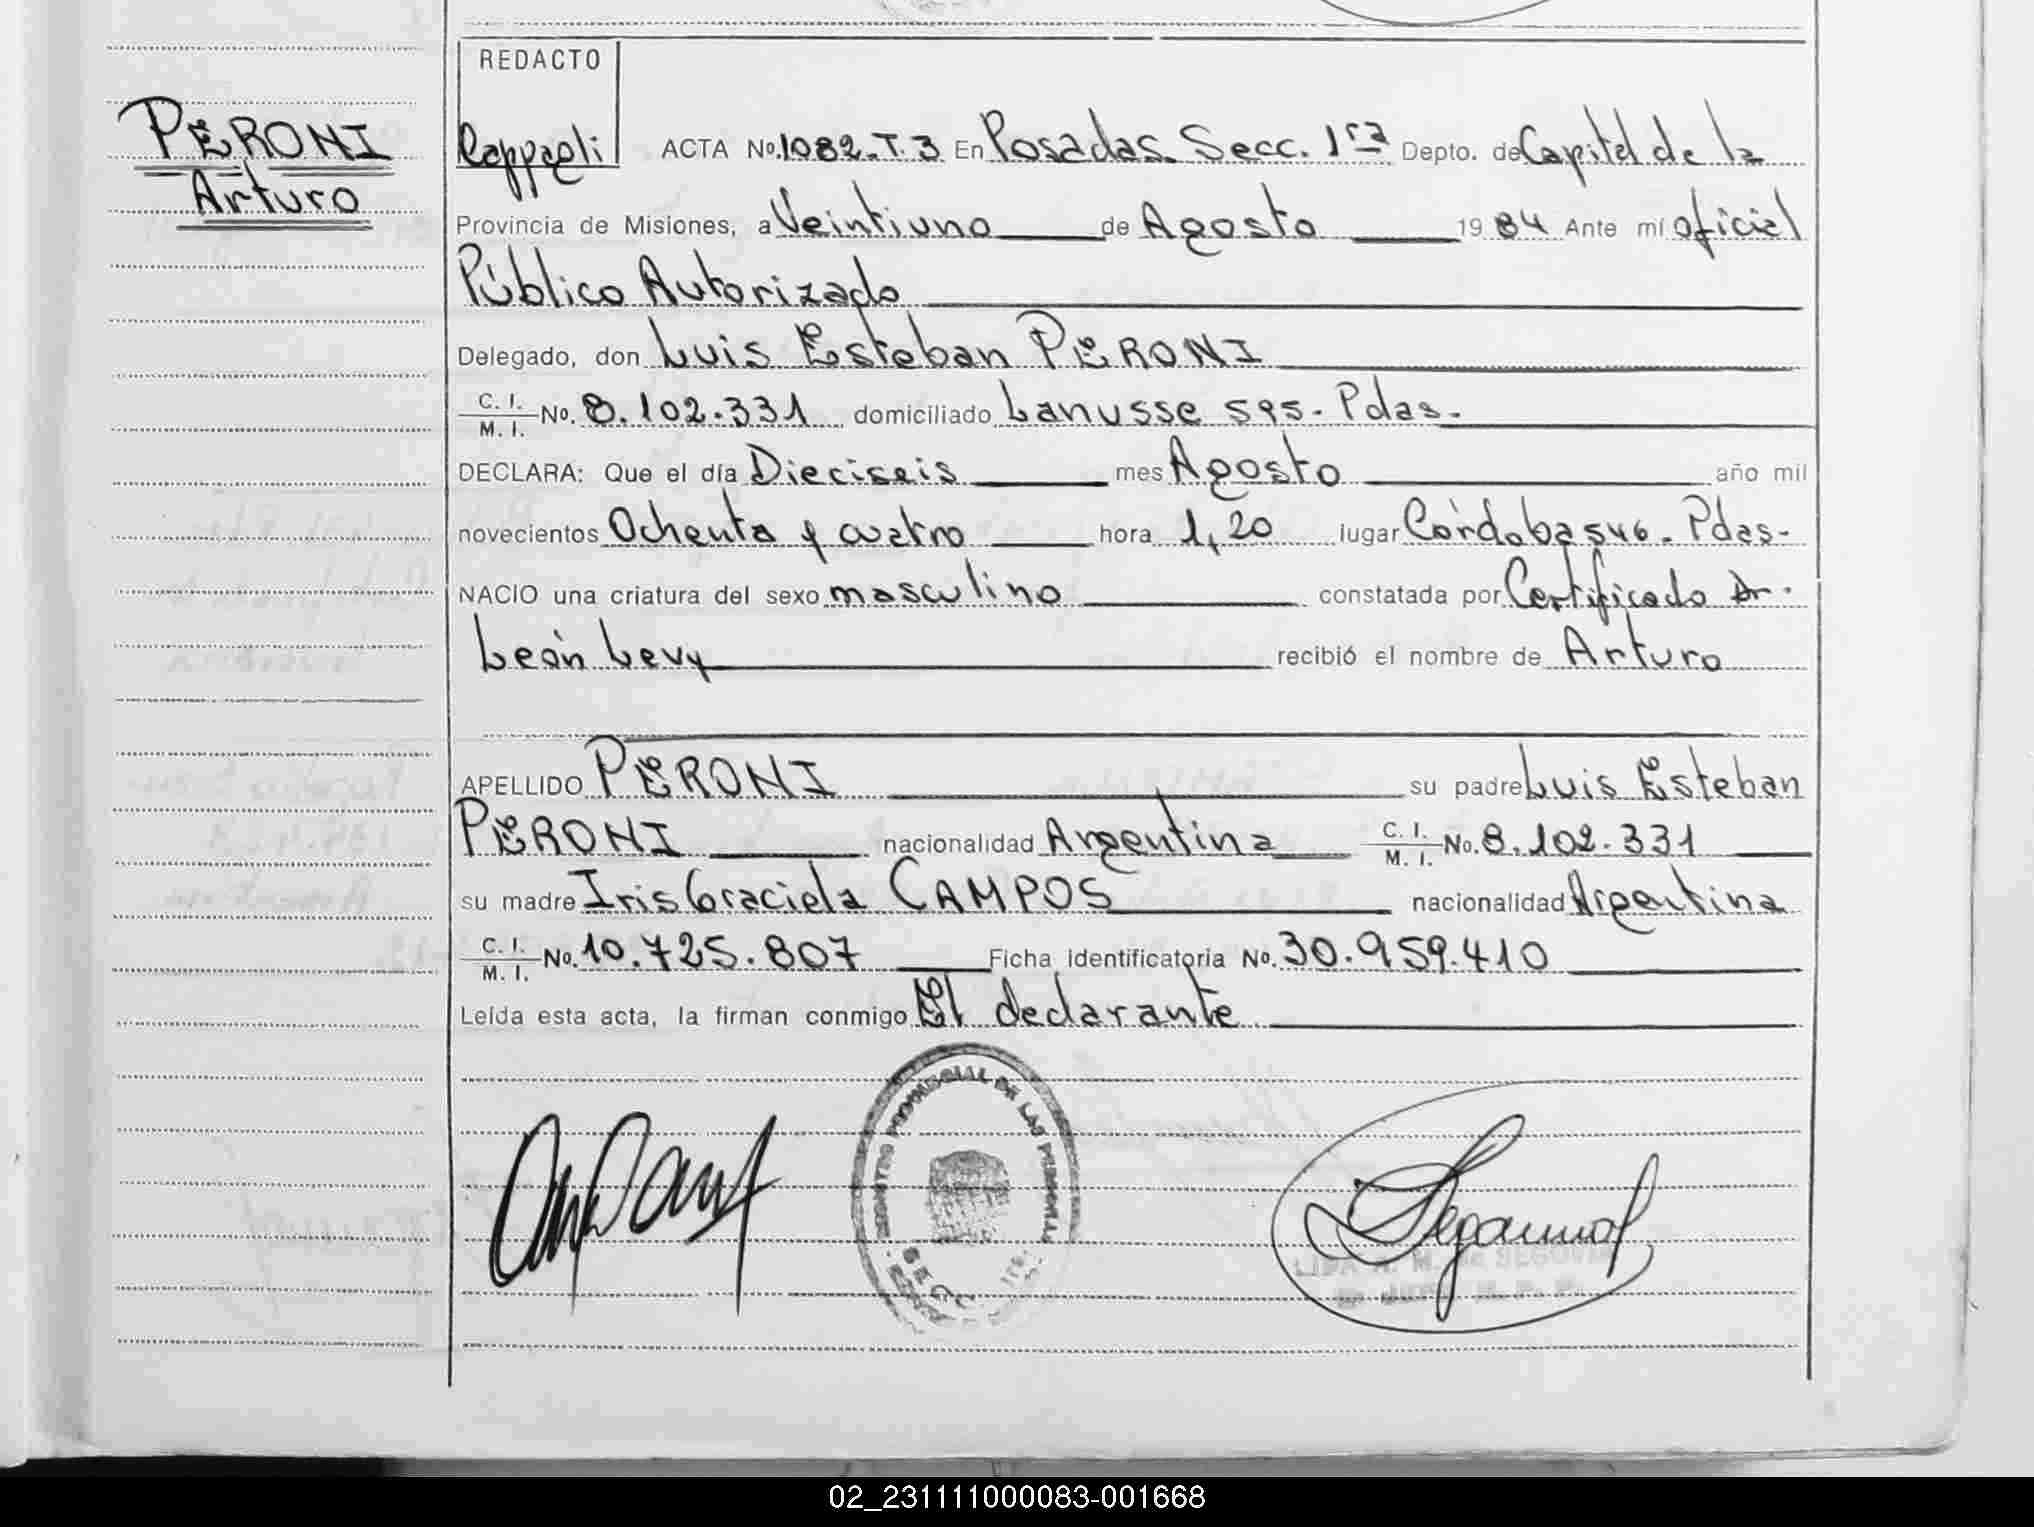 REDACTO
PERONI
Arturo
Cappaoli ACTA No. 1082-T.3 En Posadas Secc. 1ra Depto. de Capital de la
Provincia de Misiones, a Veintiuno de Agosto 19 84 Ante mí oficial
Público Autorizado
Delegado, don Luis Esteban PERONI
C. I. M. I. No. 8.102.331 domiciliado Lanusse 595- Pdas-
DECLARA: Que el día Dieciseis mes Agosto año mil
novecientos Ochenta y cuatro hora 1,20 lugar Córdoba 546- Pdas-
NACIO una criatura del sexo masculino constatada por Certificado Dr.
León Levy recibió el nombre de Arturo
APELLIDO PERONI su padre Luis Esteban
PERONI nacionalidad Argentina C. I. M. I. No. 8.102.331
su madre Iris Graciela CAMPOS nacionalidad Argentina
C. I. M. I. No. 10.725.807 Ficha identificatoria No. 30.959.410
Leída esta acta, la firman conmigo El declarante
REGISTRO PROVINCIAL DE LAS PERSONAS
SECC. 1ra.
LIDA A. M. de SEGOVIA
R. P. P.
02_231111000083-001668